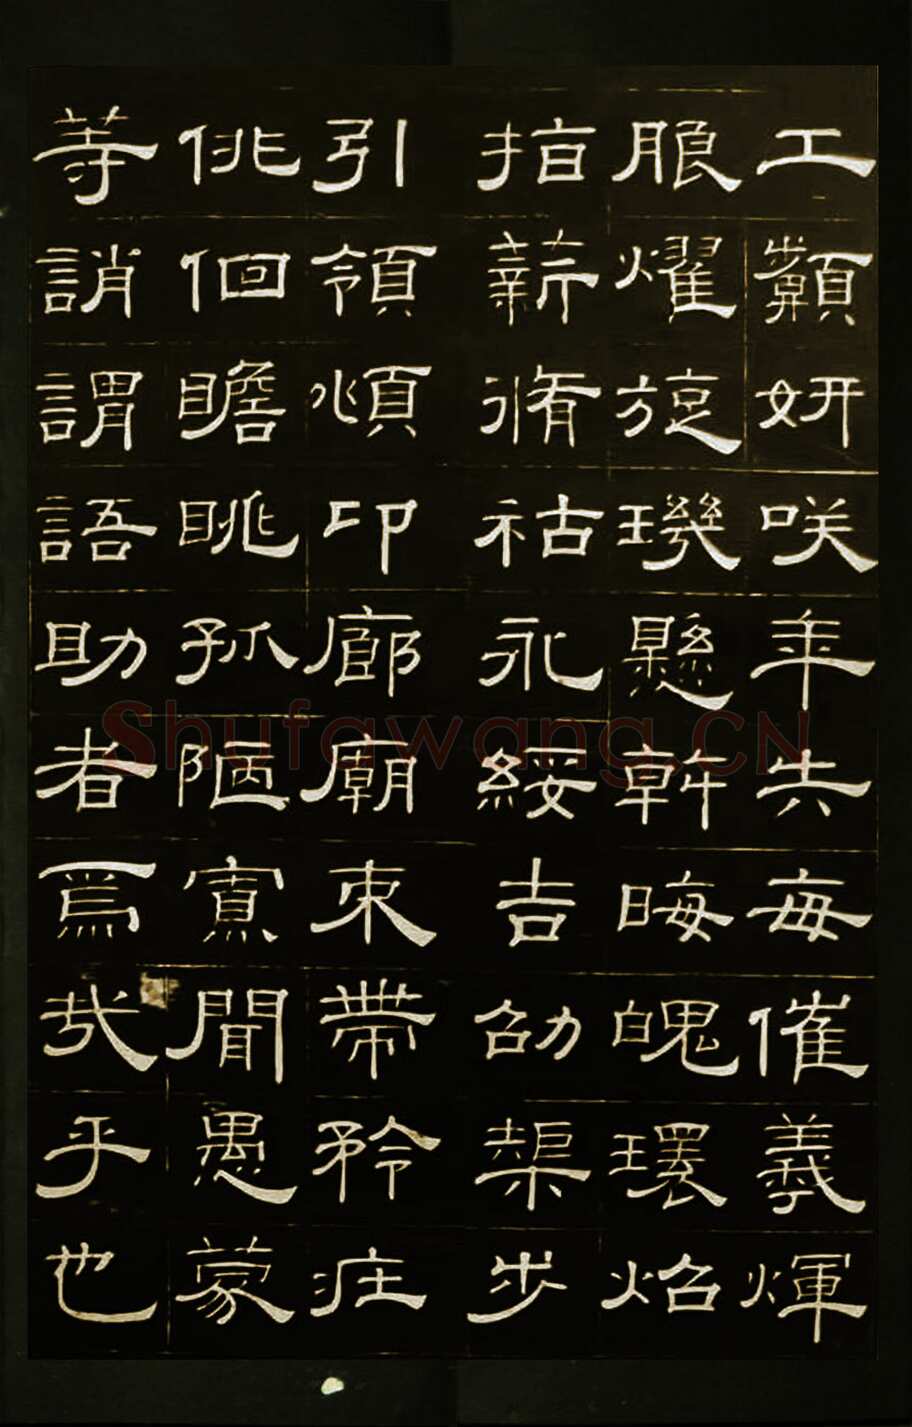 工顰妍咲年矢每催羲煇
朖燿旋璣懸斡晦魄環炤
指薪脩祜永綏吉劭榘步
引領頫卬廊廟束帶矜莊
俳佪瞻眺孤陋寡聞愚蒙
等誚謂語助者焉哉乎也
Shufawang.CN